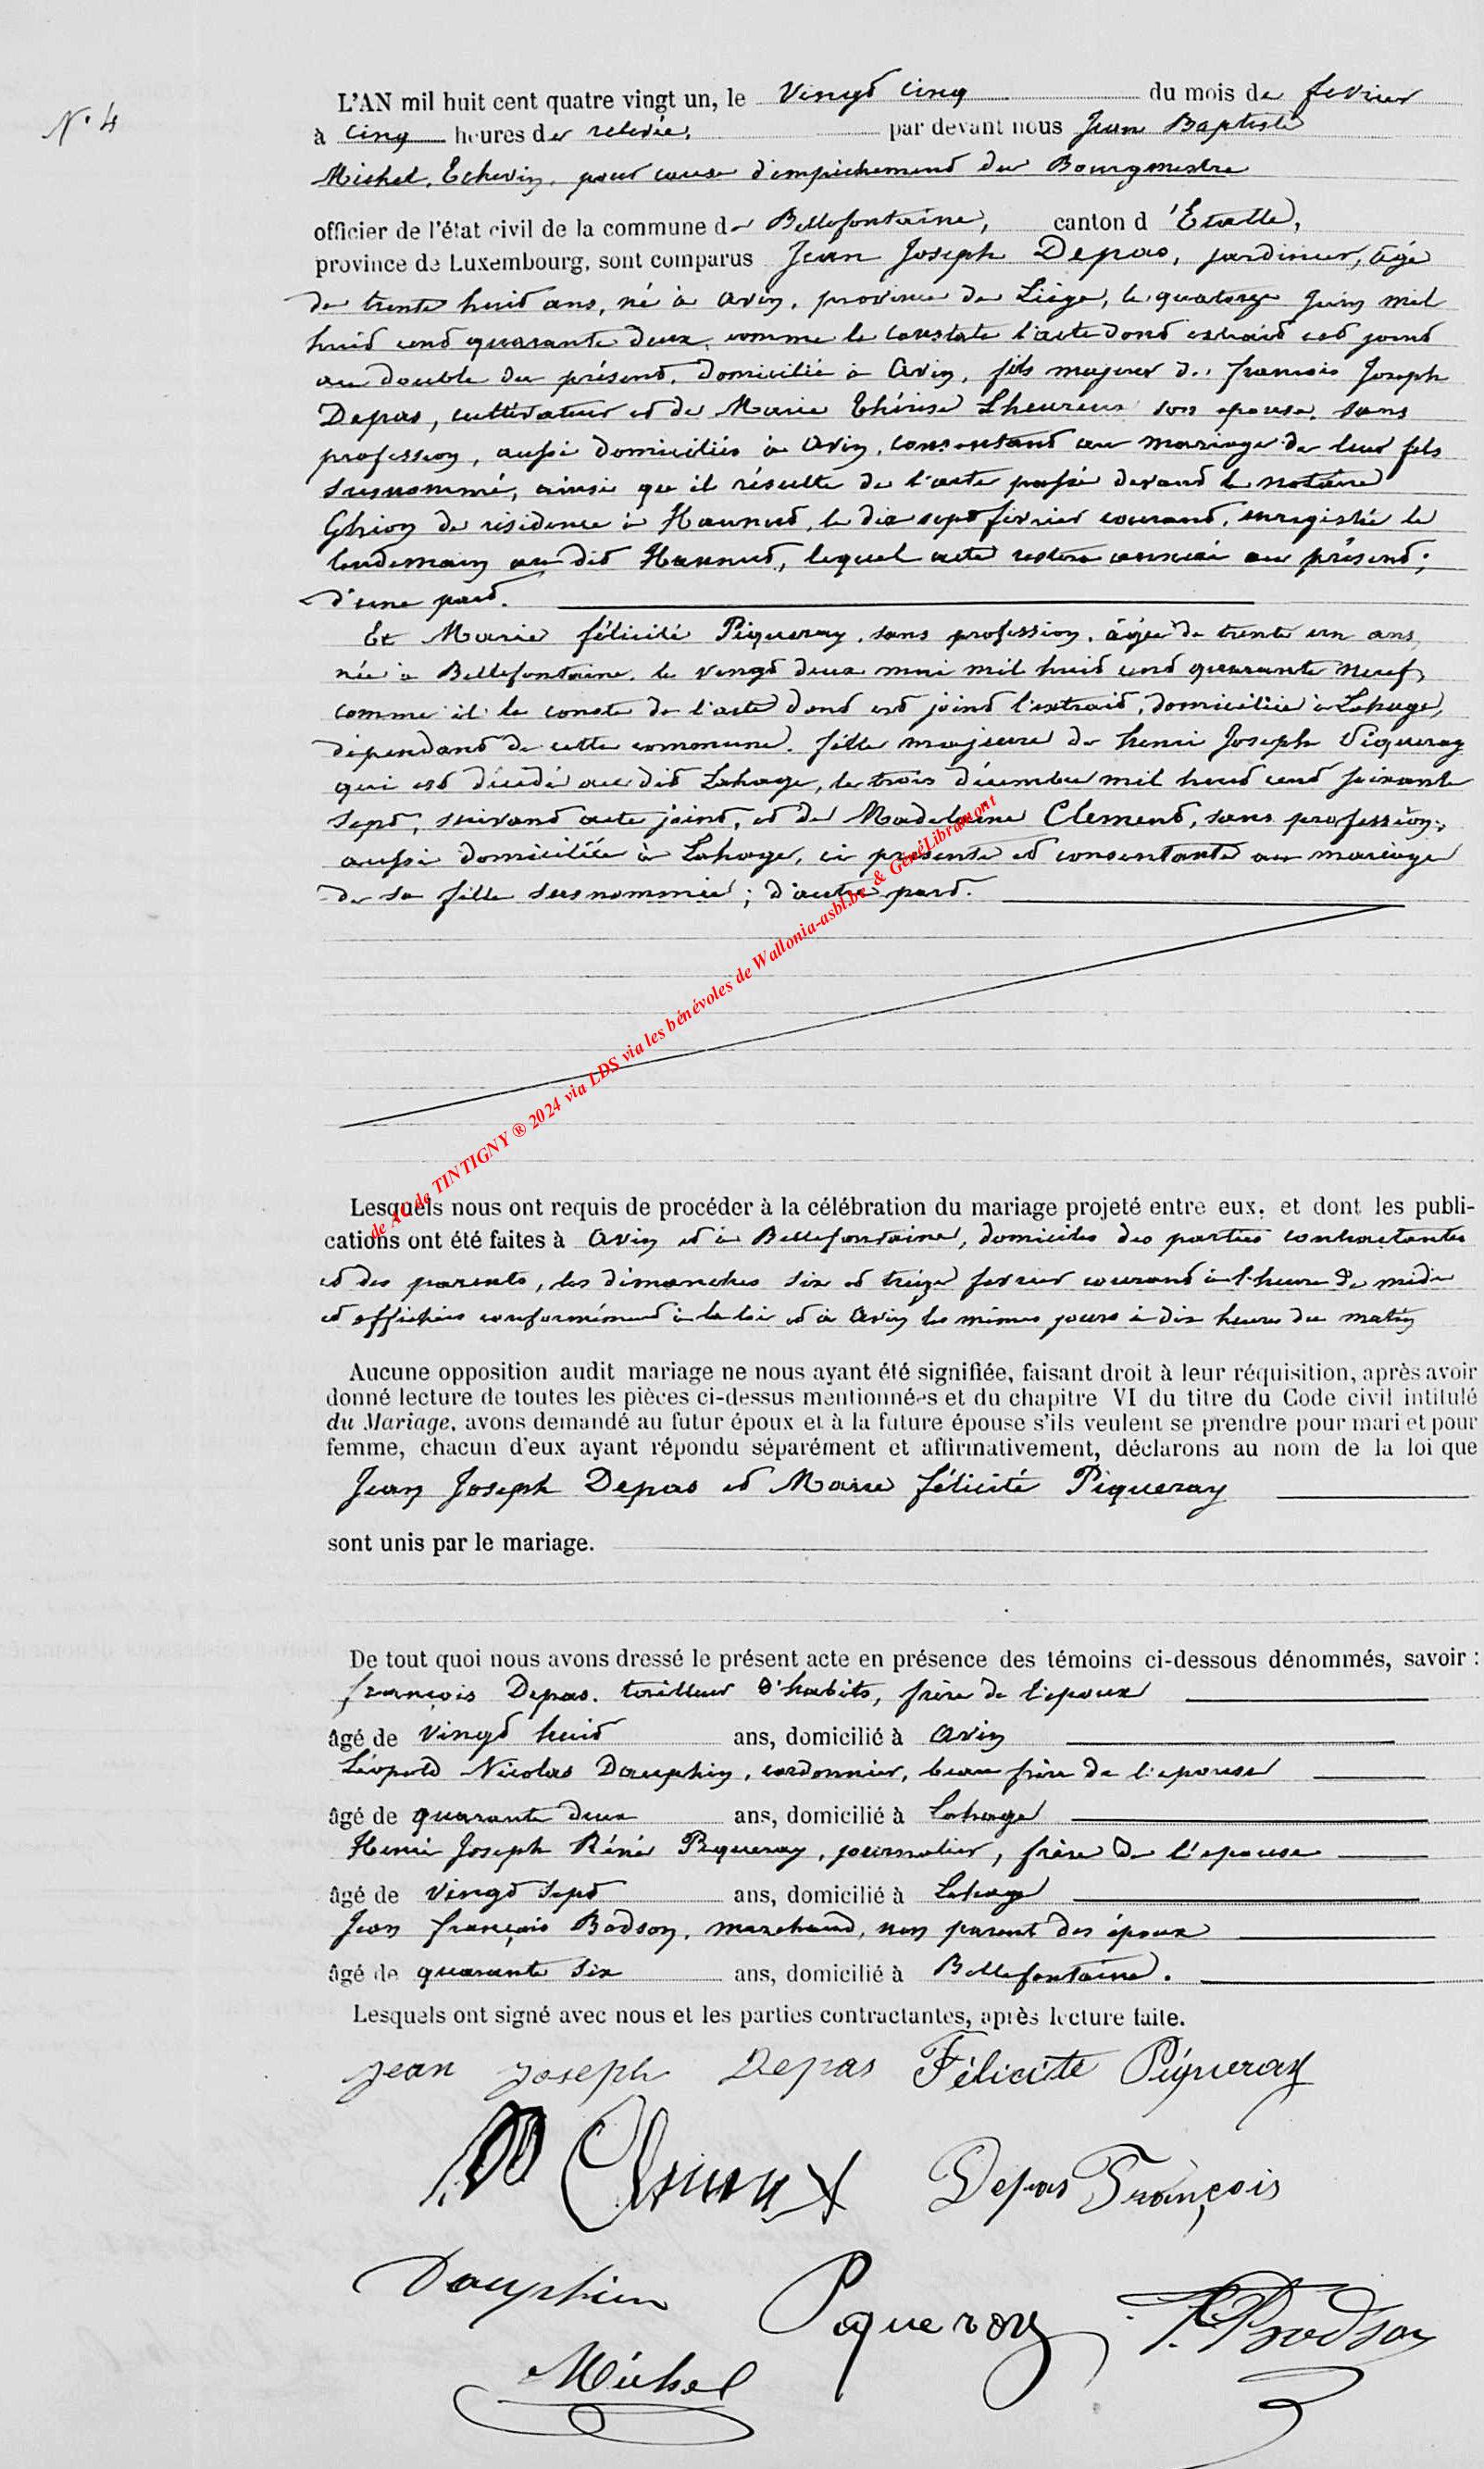 N° 4
L'AN mil huit cent quatre vingt un, le vingt cinq du mois de fevrier
à cinq heures de relevée, par devant nous Jean Baptiste
Michel, Echevin, pour cause d'empêchement du Bourgmestre
officier de l'état civil de la commune de Bellefontaine, canton d'Etalle,
province de Luxembourg, sont comparus Jean Joseph Depas, jardinier, âgé
de trente huit ans, né à Avin, province de Liège, le quatorze Juin mil
huit cent quarante deux, comme le constate l'acte dont extrait est joint
au double du présent, domicilié à Avin, fils majeur de francois Joseph
Depas, cultivateur et de Marie Thérèse Lheureux son epouse, sans
profession, aussi domiciliés à Avin, consentant au mariage de leur fils
susnommé, ainsi qu'il résulte de l'acte passé devant le notaire
Ghion de résidence à Hannut, le dix sept février courant, enregistré le
lendemain au dit Hannut, lequel acte restera annexé au présent;
d'une part.
Et Marie félicité Piqueray, sans profession, âgée de trente un ans,
née à Bellefontaine, le vingt deux mai mil huit cent quarante neuf,
comme il le conste de l'acte dont est joint l'extrait, domiciliée à Lahage,
dépendant de cette commune, fille majeure de henri Joseph Piqueray
qui est décédé au dit Lahage, le trois décembre mil huit cent soixante
sept, suivant acte joint, et de Madelaine Clement, sans profession,
aussi domiciliée à Lahage, ci présente et consentante au mariage
de sa fille susnommée; d'autre part.
de AC de TINTIGNY ® 2024 via LDS via les bénévoles de Wallonia-asbl.be & GénéLibramont
Lesquels nous ont requis de procéder à la célébration du mariage projeté entre eux, et dont les publi-
cations ont été faites à Avin et à Bellefontaine, domiciles des parties contractantes
et des parents, les dimanches six et treize fevrier courant à l'heure de midi
et affichées conformément à la loi et à Avin les mêmes jours à dix heures du matin
Aucune opposition audit mariage ne nous ayant été signifiée, faisant droit à leur réquisition, après avoir
donné lecture de toutes les pièces ci-dessus mentionnées et du chapitre VI du titre du Code civil intitulé
du Mariage, avons demandé au futur époux et à la future épouse s'ils veulent se prendre pour mari et pour
femme, chacun d'eux ayant répondu séparément et affirmativement, déclarons au nom de la loi que
Jean Joseph Depas et Marie félicité Piqueray
sont unis par le mariage.
De tout quoi nous avons dressé le présent acte en présence des témoins ci-dessous dénommés, savoir :
françois Depas, tailleur d'habits, frère de l'epoux
âgé de vingt huit ans, domicilié à Avin
Léopold Nicolas Dauphin, cordonnier, beau frère de l'epouse
âgé de quarante deux ans, domicilié à Lahage
Henri Joseph Réné Piqueray, journalier, frère de l'epouse
âgé de vingt sept ans, domicilié à Lahage
Jean françois Bodson, marchand, non parent des époux
âgé de quarante six ans, domicilié à Bellefontaine.
Lesquels ont signé avec nous et les parties contractantes, après lecture faite.
jean joseph Depas Félicité Piqueray
Depas François
Dauphin Piqueray
Michel